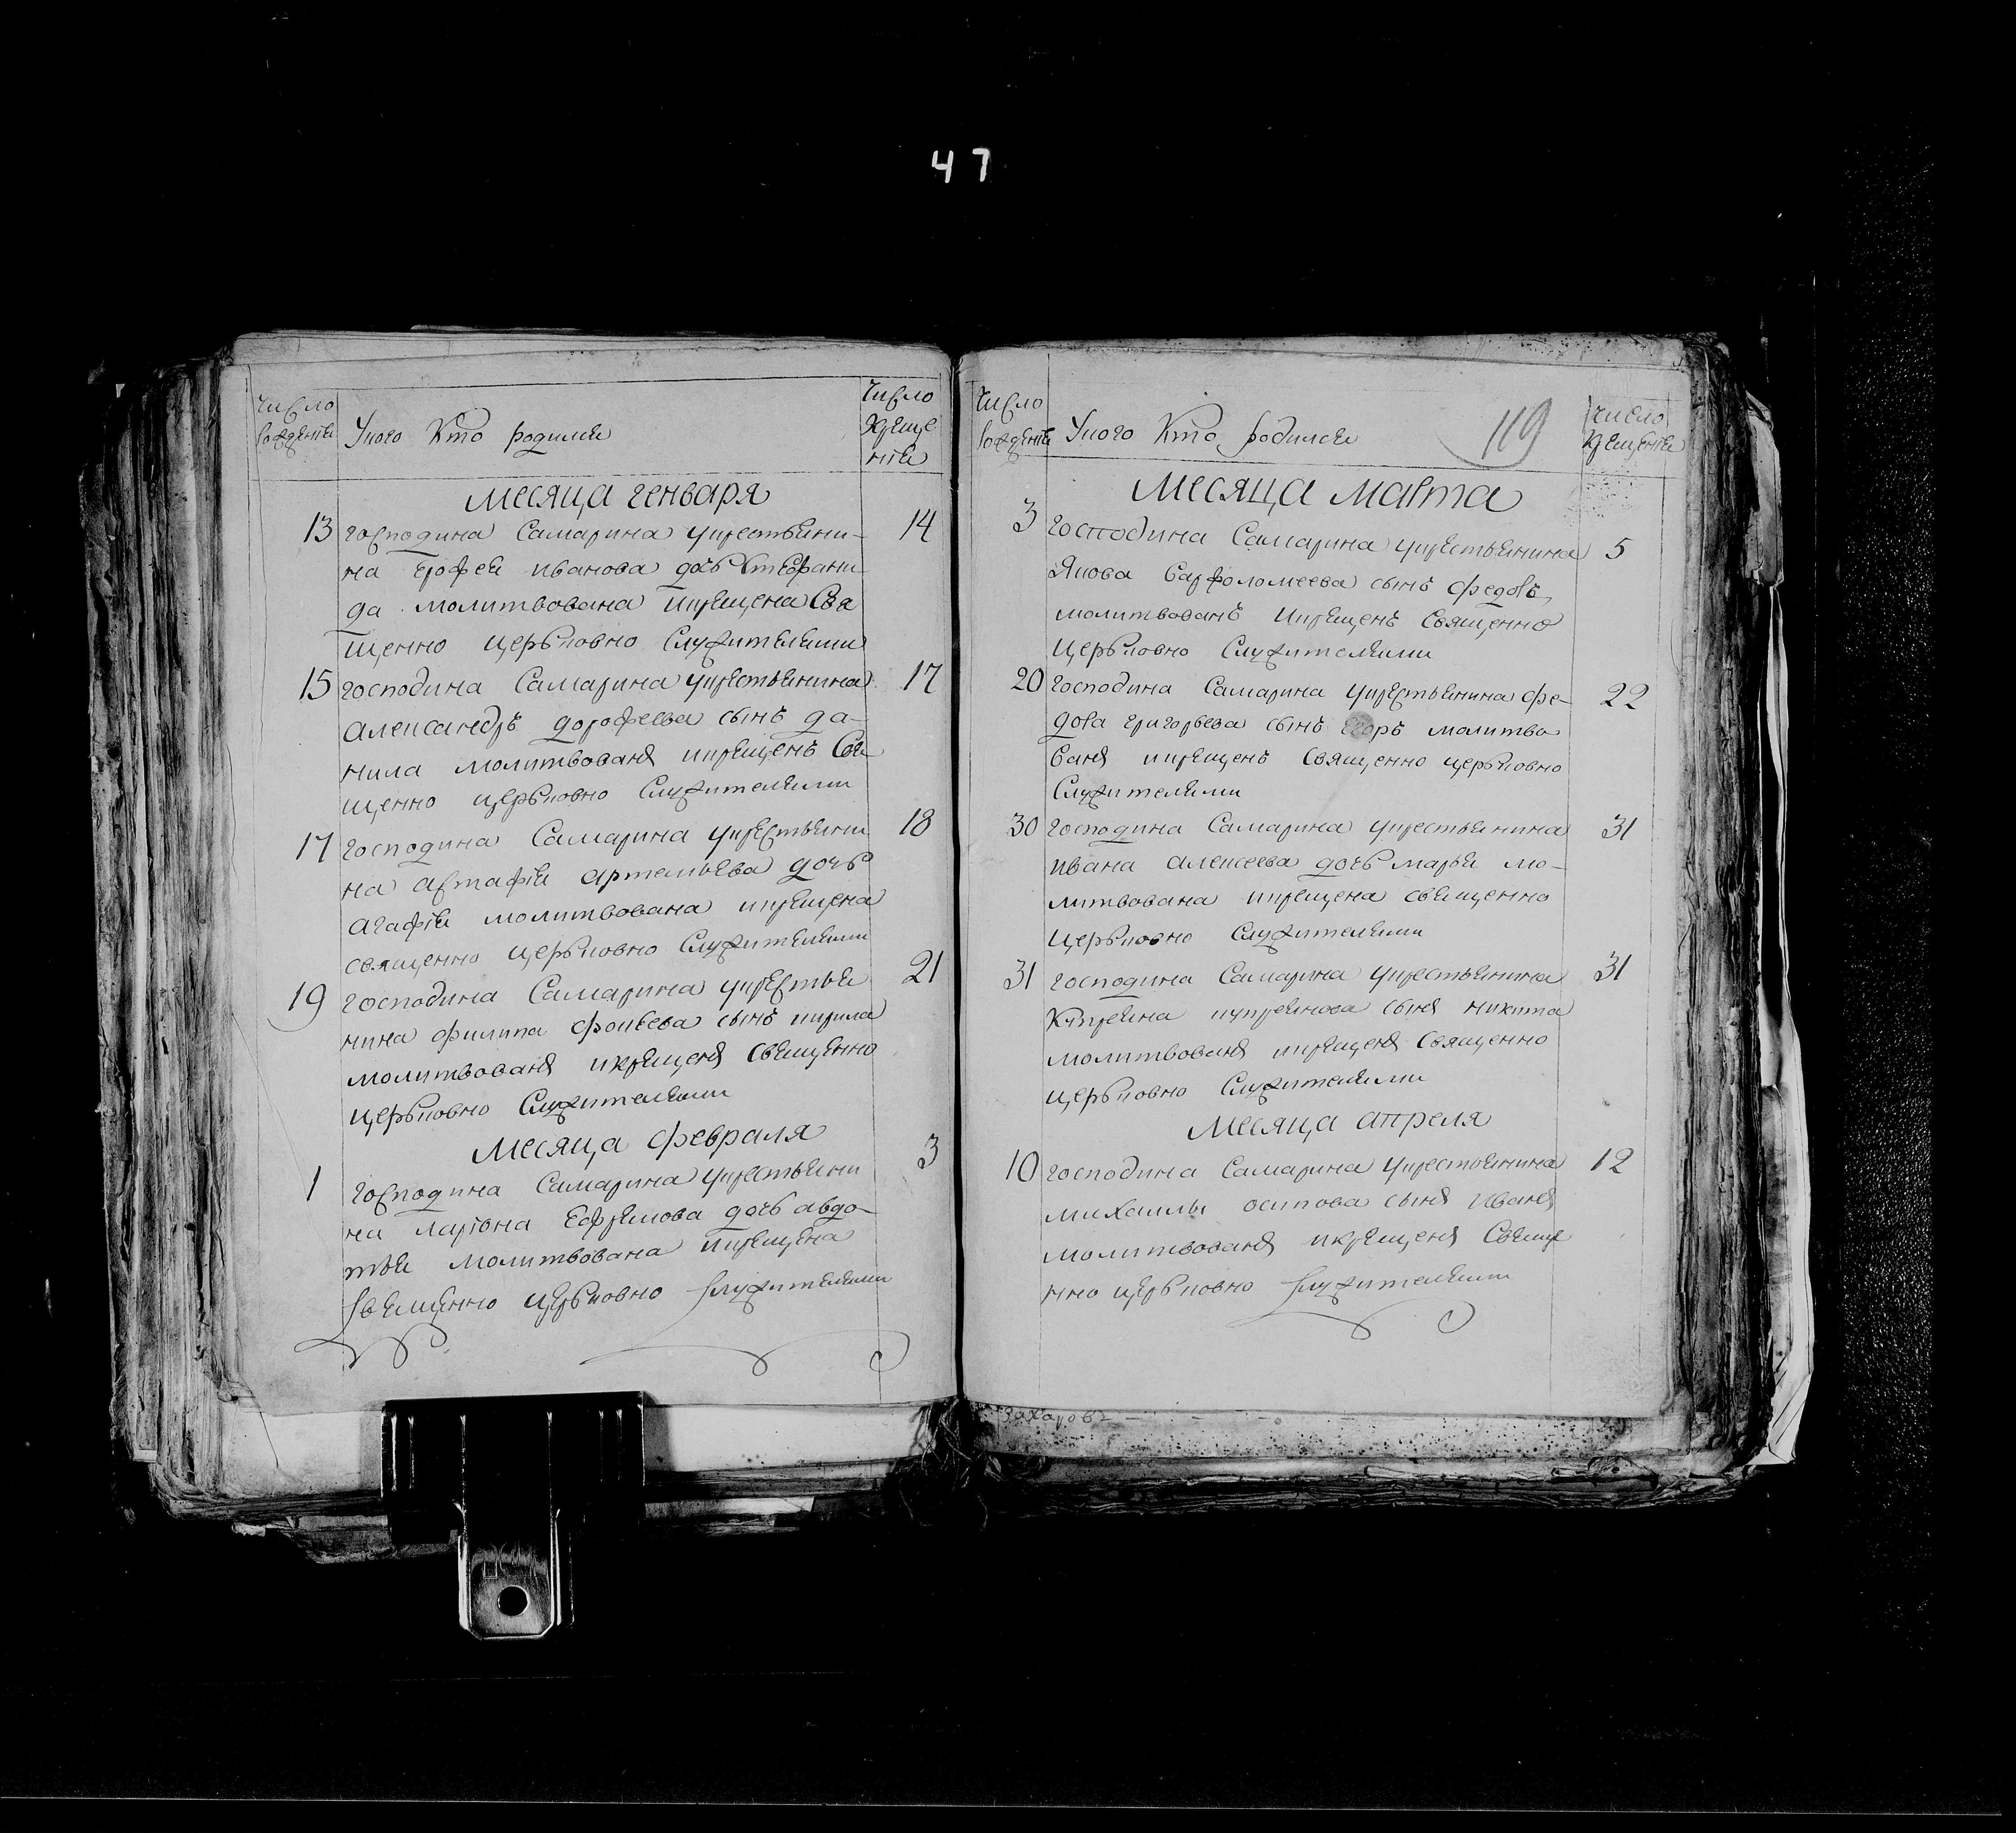 47
число рожденiя
Укого Кто родился
число крещенiя
месяца генваря
13 господина Самарина укрестьяни-
на Ерофея иванова дочь Стефани-
да молитвована икрещена Свя
щенно церьковно Служителями
14
15 господина Самарина укрестьянина
александръ дорофеева сынъ да-
нила молитвованъ икрещенъ Свя
щенно церьковно Служителями
17
17 господина Самарина укрестьяни
на астафiя артемьева дочь
агафiя молитвована икрещена
священно церьковно Служителями
18
19 господина Самарина укрестья
нина филипа фокеева сынъ кирила
молитвованъ икрещенъ священно
церьковно Служителями
21
месяца февраля
1 господина Самарина укрестьяни
на ларiона Ефремова дочь авдо-
тья молитвована икрещена
священно церьковно служителями
3
число рожденiя
Укого Кто родился
119
число крещенiя
месяца марта
3 господина Самарина укрестьянина
Якова варфоломеева сынъ федоръ
молитвованъ икрещенъ священно
церьковно Служителями
5
20 господина Самарина укрестьянина фе-
дора григорьева сынъ Егоръ молитво
ванъ икрещенъ священно церьковно
Служителями
22
30 господина Самарина укрестьянина
ивана алексеева дочь марья мо-
литвована икрещена священно
церьковно Служителями
31
31 господина Самарина укрестьянина
Купреяна купреянова сынъ никита
молитвованъ икрещенъ священно
церьковно Служителями
31
месяца апреля
10 господина Самарина укрестьянина
михаилы осипова сынъ иванъ
молитвованъ икрещенъ Свяще
нно церьковно служителями
12
захаровъ